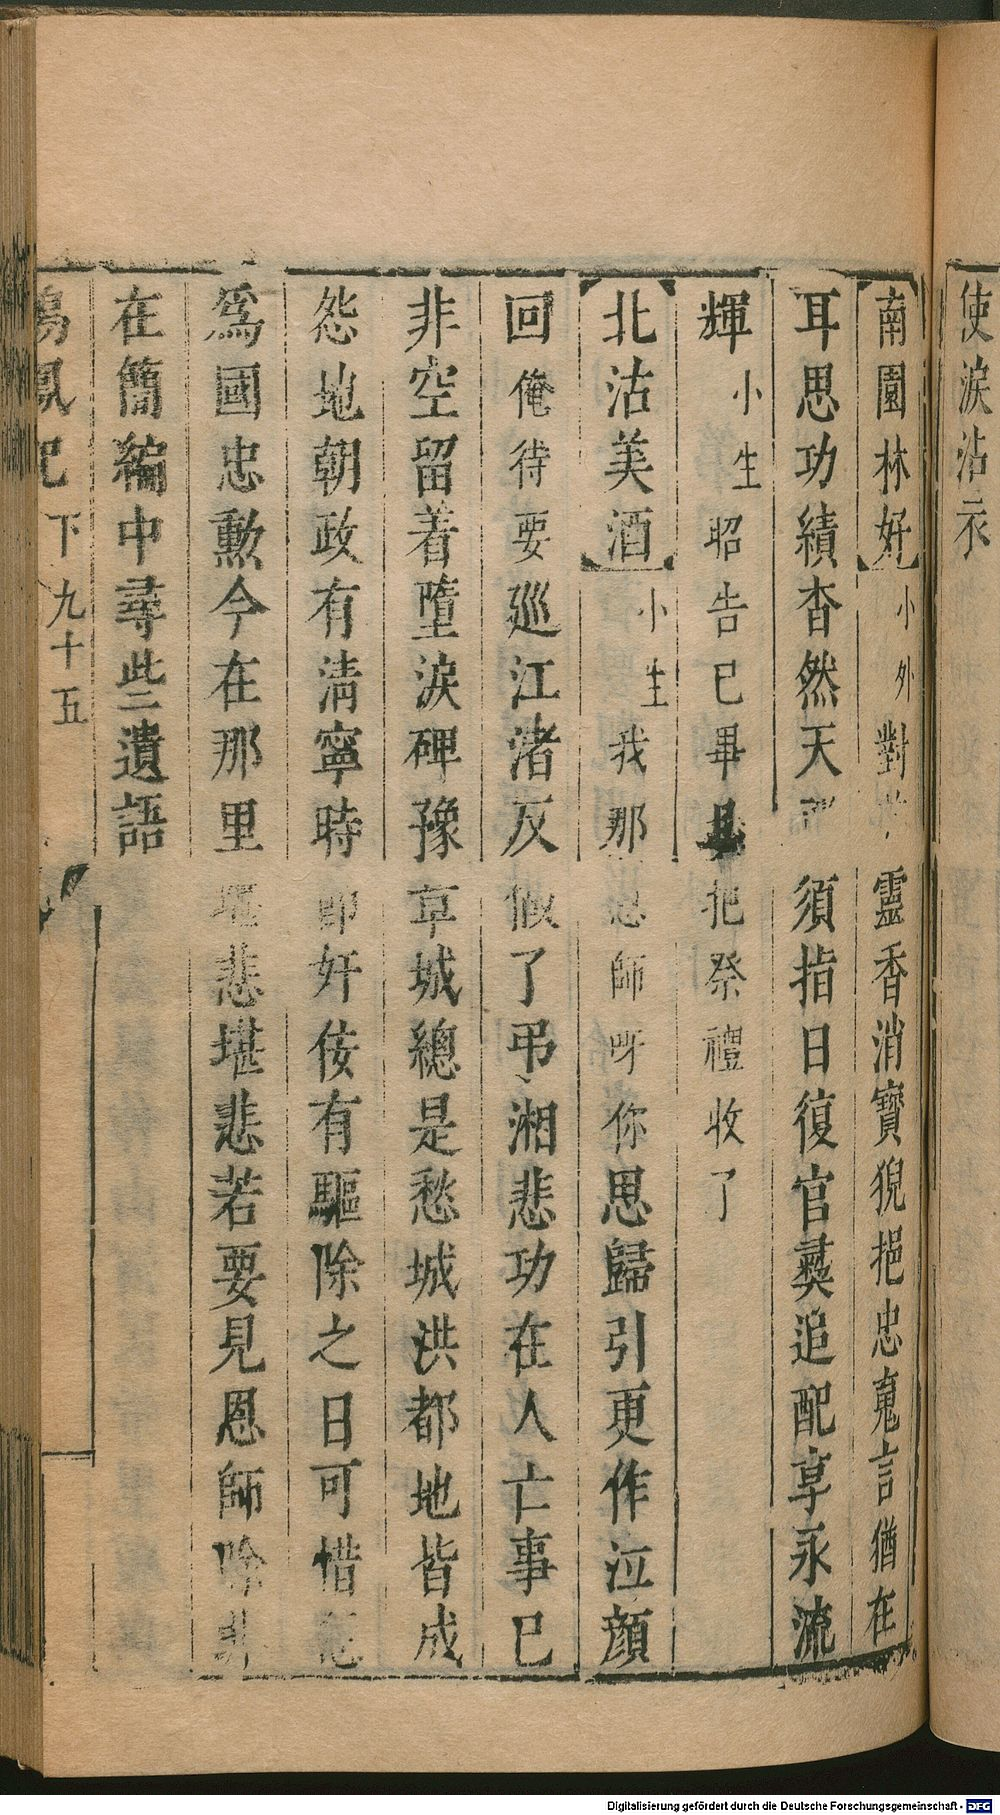 使淚沾示
【南園林好】小外對靈香消寶猊挹忠䰟言猶在
耳思功績杳然天須指日復官蕤追配享永流
輝小生昭告已畢把祭禮收了
【北沽美酒】小生我那恩師呀你思歸引更作泣顔
回俺待要廵江渚反做了弔湘悲功在人亡事已
非空留着墮淚碑豫章城總是愁城洪都地皆成
怨地朝政有清寧時即奸佞有驅除之日可惜
爲國忠勲今在那里堪悲堪悲若要見恩師除非
在簡編中尋些遺語
鳳記 下 九十五
Digitalisierung gefördert durch die Deutsche Forschungsgemeinschaft - DFG